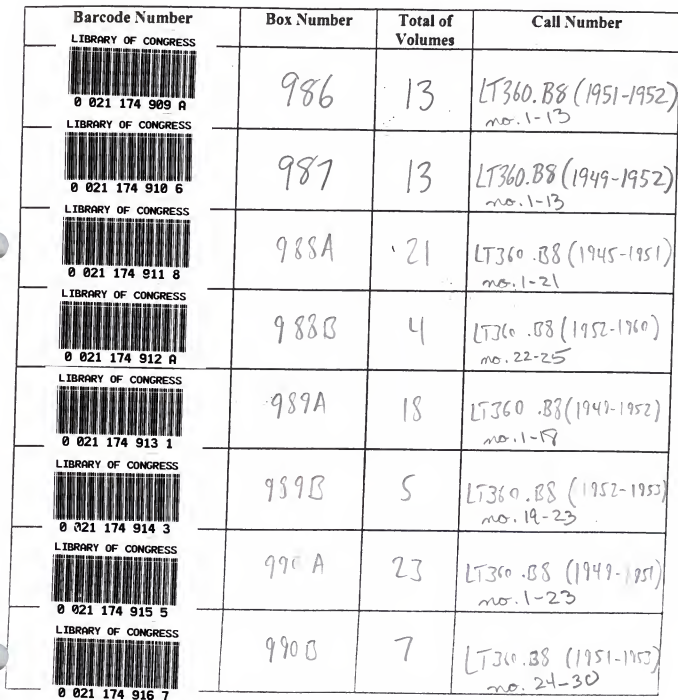 Barcode Number Box Number Total of Volumes Call Number
LIBRARY OF CONGRESS
0 021 174 909 A
986 13 LT360.B8 (1951-1952)
no. 1-13
LIBRARY OF CONGRESS
0 021 174 910 6
987 13 LT360.B8 (1949-1952)
no. 1-13
LIBRARY OF CONGRESS
0 021 174 911 8
988A 21 LT360 .B8 (1945-1951)
no. 1-21
LIBRARY OF CONGRESS
0 021 174 912 A
988B 4 LT360 .B8 (1952-1960)
no. 22-25
LIBRARY OF CONGRESS
0 021 174 913 1
989A 18 LT360 .B8 (1949-1952)
no. 1-18
LIBRARY OF CONGRESS
0 021 174 914 3
989B 5 LT360.B8 (1952-1953)
no. 19-23
LIBRARY OF CONGRESS
0 021 174 915 5
990 A 23 LT360 .B8 (1949-1951)
no. 1-23
LIBRARY OF CONGRESS
0 021 174 916 7
990 B 7 LT360.B8 (1951-1953)
no. 24-30